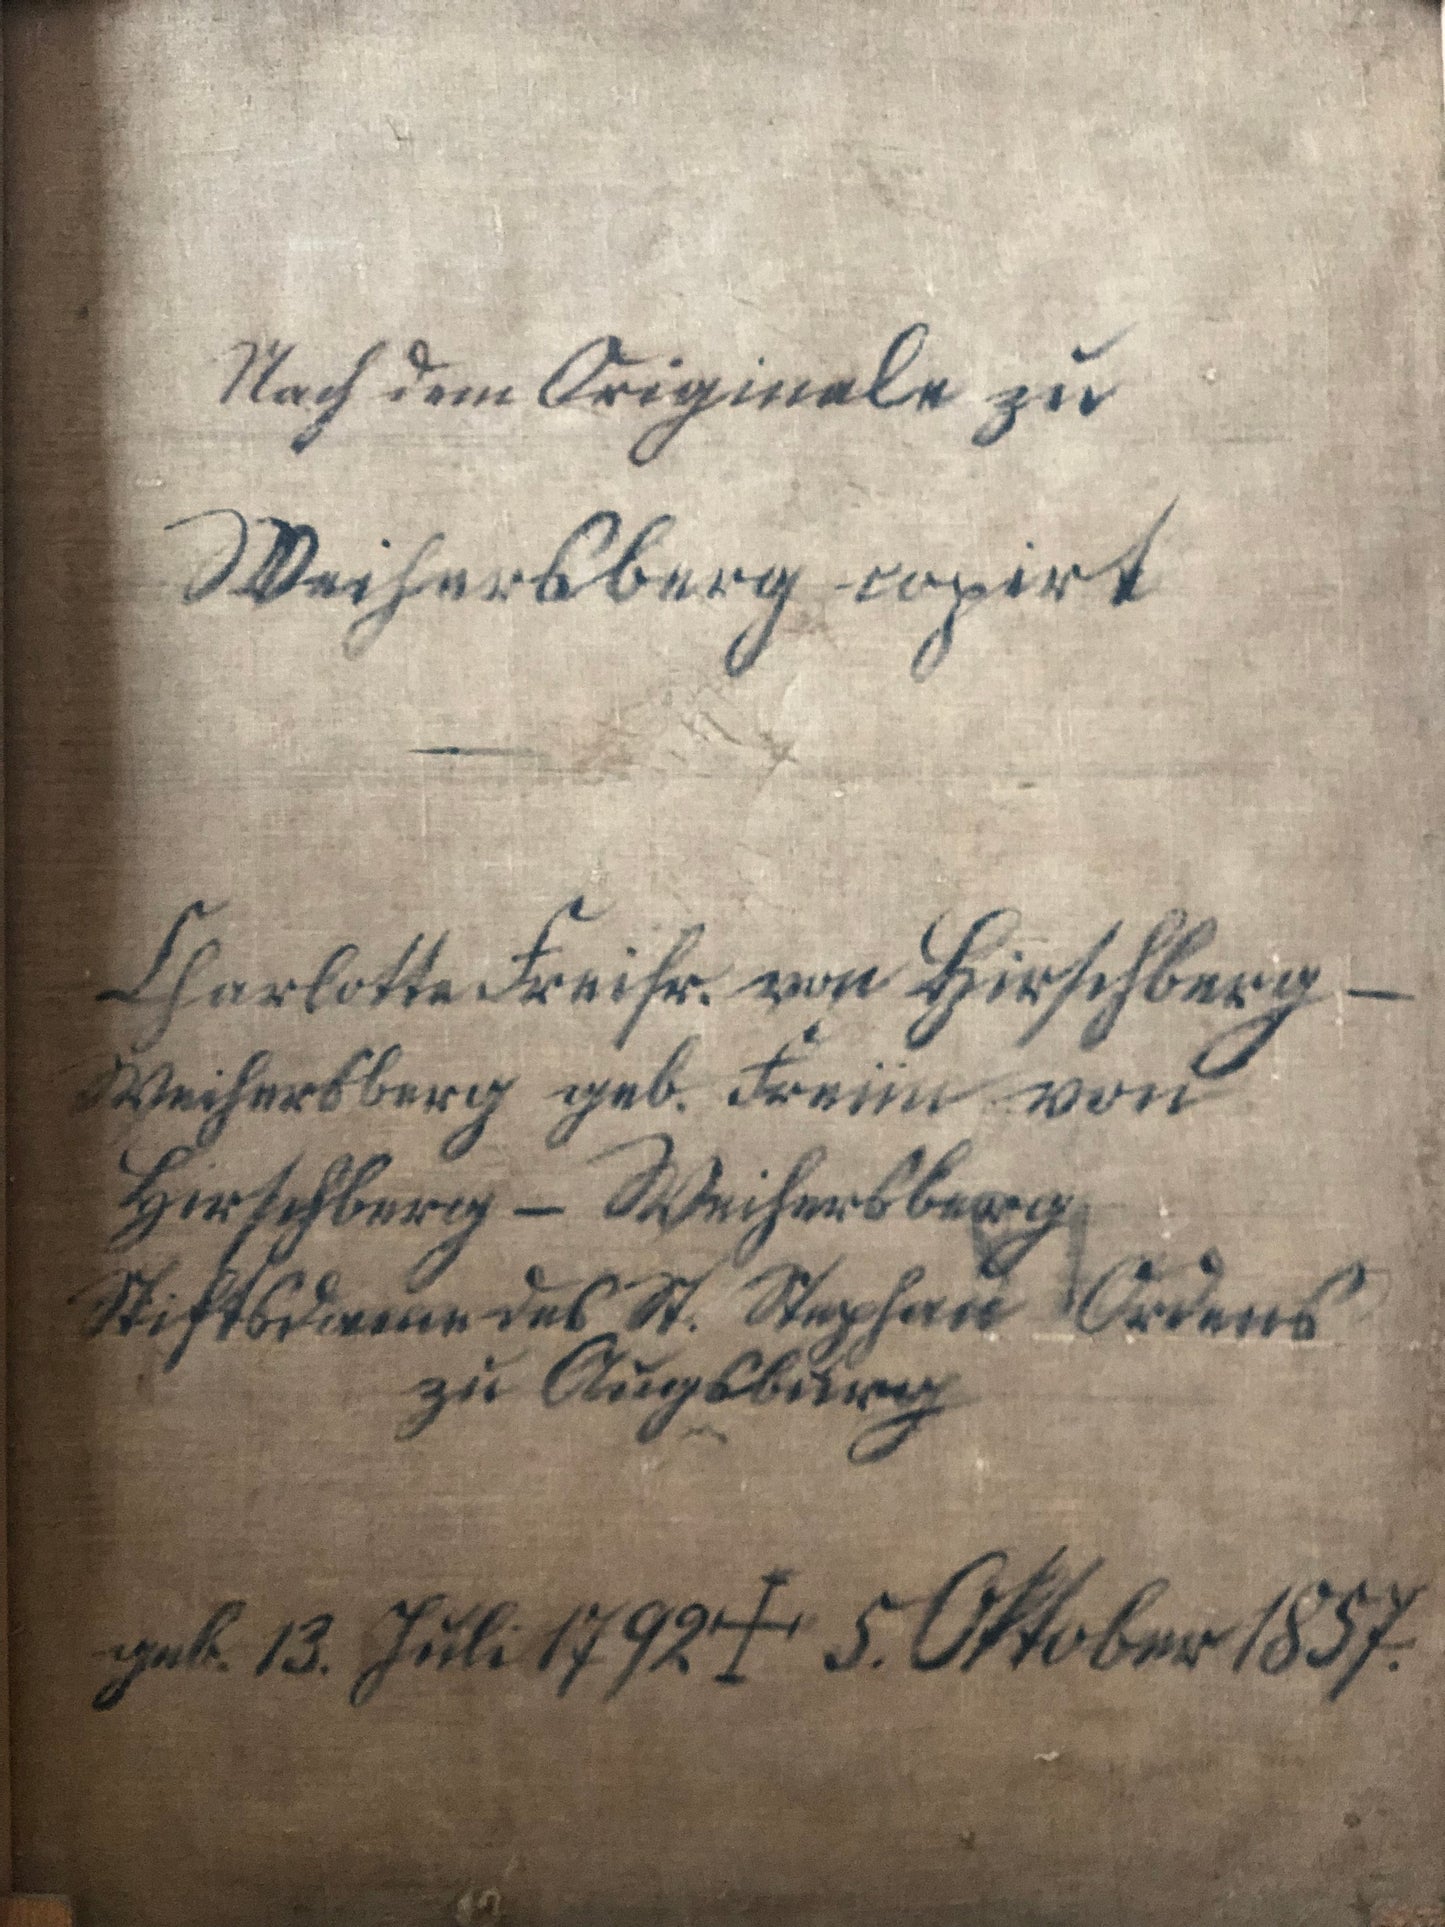 Nach dem Originale zu
Weihersberg copirt
—
Charlotte Freifr. von Hirschberg –
Weihersberg geb. Freiin von
Hirschberg – Weihersberg
Stiftsdame des St. Stephan Ordens
zu Augsburg
geb. 13. Juli 1792 ┼ 5. Oktober 1857.